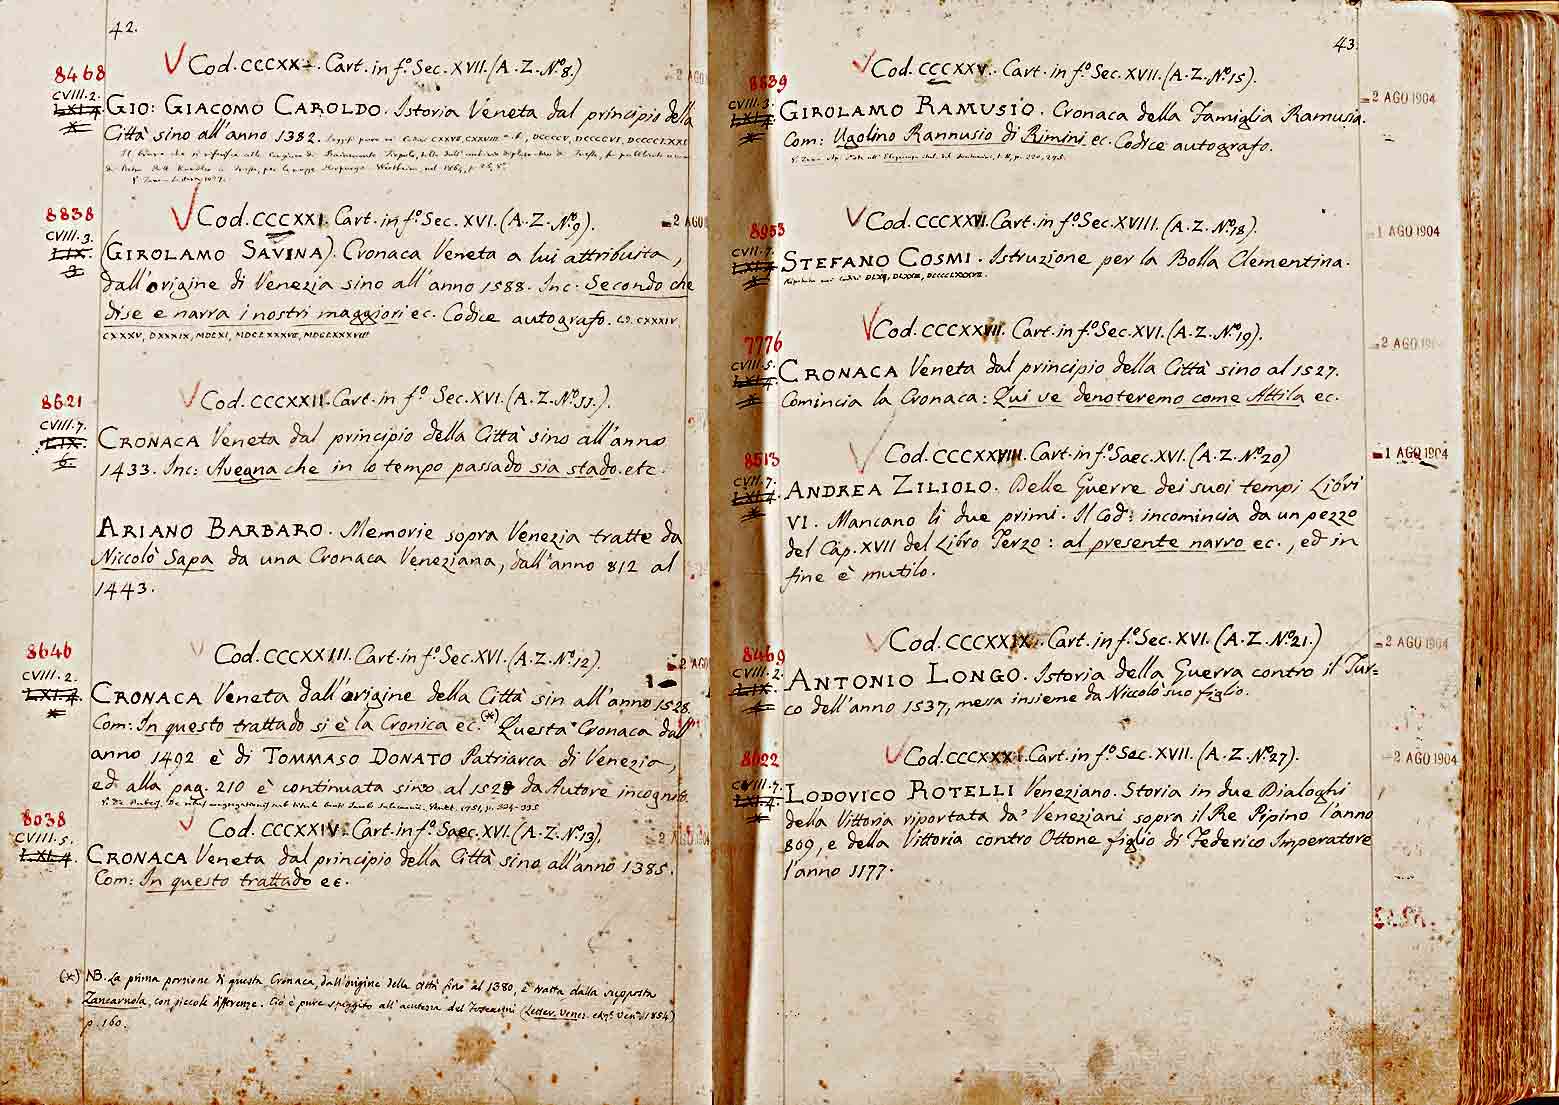 42.
8468
CVIII. 2.
Cod. CCCXX. Cart. in f.º Sec. XVII. (A. Z. Nº 8.)
2 AGO
GIO: GIACOMO CAROLDO. Istoria Veneta dal principio della
Città sino all'anno 1382.
8838
CVIII. 3.
Cod. CCCXXI. Cart. in f.º Sec. XVI. (A. Z. Nº 9).
2 AGO
(GIROLAMO SAVINA). Cronaca Veneta a lui attribuita,
dall'origine di Venezia sino all'anno 1588. Inc: Secondo che
dise e narra i nostri maggiori ec. Codice autografo. CXXXIV
CXXXV, DXXXIX, MDLXI, MDCLXXXVII, MDCLXXXVIII
8621
CVIII. 7.
Cod. CCCXXII. Cart. in f.º Sec. XVI. (A. Z. Nº 11.).
CRONACA Veneta dal principio della Città sino all'anno
1433. Inc: Avegna che in lo tempo passado sia stado. etc.
ARIANO BARBARO. Memorie sopra Venezia tratte da
Niccolò Sapa da una Cronaca Veneziana, dall'anno 812 al
1443.
8646
CVIII. 2.
Cod. CCCXXIII. Cart. in f.º Sec. XVI. (A. Z. Nº 12).
2 AGO
CRONACA Veneta dall'origine della Città sin all'anno 1528.
Com: In questo trattado si è la Cronica ec. (*) Questa Cronaca dall'
anno 1492 è di TOMMASO DONATO Patriarca di Venezia,
ed alla pag. 210 è continuata sino al 1528 da Autore incognito.
8038
CVIII. 5.
Cod. CCCXXIV. Cart. in f.º Saec. XVI. (A. Z. Nº 13).
2 AGO 1904
CRONACA Veneta dal principio della Città sino all'anno 1385.
Com: In questo trattado ec.
(*) NB. La prima porzione di questa Cronaca, dall'origine della città fino al 1380, è tratta dalla supposta
Zancaruola, con piccole differenze. Ciò è pure sfuggito all'acutezza del Foscarini (Letter. Venez. 1854)
p. 160.
43.
8839
CVIII. 3.
Cod. CCCXXV. Cart. in f.º Sec. XVII. (A. Z. Nº 15).
2 AGO 1904
GIROLAMO RAMUSIO. Cronaca della Famiglia Ramusia.
Com: Ugolino Rannusio di Rimini ec. Codice autografo.
8953
CVII. 7.
Cod. CCCXXVI. Cart. in f.º Sec. XVIII. (A. Z. Nº 18).
1 AGO 1904
STEFANO COSMI. Istruzione per la Bolla Clementina.
7776
CVIII. 5.
Cod. CCCXXVII. Cart. in f.º Sec. XVI. (A. Z. Nº 19).
2 AGO 1904
CRONACA Veneta dal principio della Città sino al 1527.
Comincia la Cronaca: Qui ve denoteremo come Attila ec.
8513
CVII. 7.
Cod. CCCXXVIII. Cart. in f.º Saec. XVI. (A. Z. Nº 20)
1 AGO 1904
ANDREA ZILIOLO. Delle Guerre dei suoi tempi Libri
VI. Mancano li due primi. Il Cod: incomincia da un pezzo
del Cap. XVII del Libro Terzo: al presente narro ec., ed in
fine è mutilo.
8469
CVIII. 2.
Cod. CCCXXIX. Cart. in f.º Sec. XVI. (A. Z. Nº 21.)
2 AGO 1904
ANTONIO LONGO. Istoria della Guerra contro il Tur=
co dell'anno 1537, messa insieme da Niccolò suo figlio.
8022
CVIII. 7.
Cod. CCCXXX. Cart. in f.º Sec. XVII. (A. Z. Nº 27).
2 AGO 1904
LODOVICO ROTELLI Veneziano. Storia in due Dialoghi
della Vittoria riportata da' Veneziani sopra il Re Pipino l'anno
809, e della Vittoria contro Ottone figlio di Federico Imperatore
l'anno 1177.